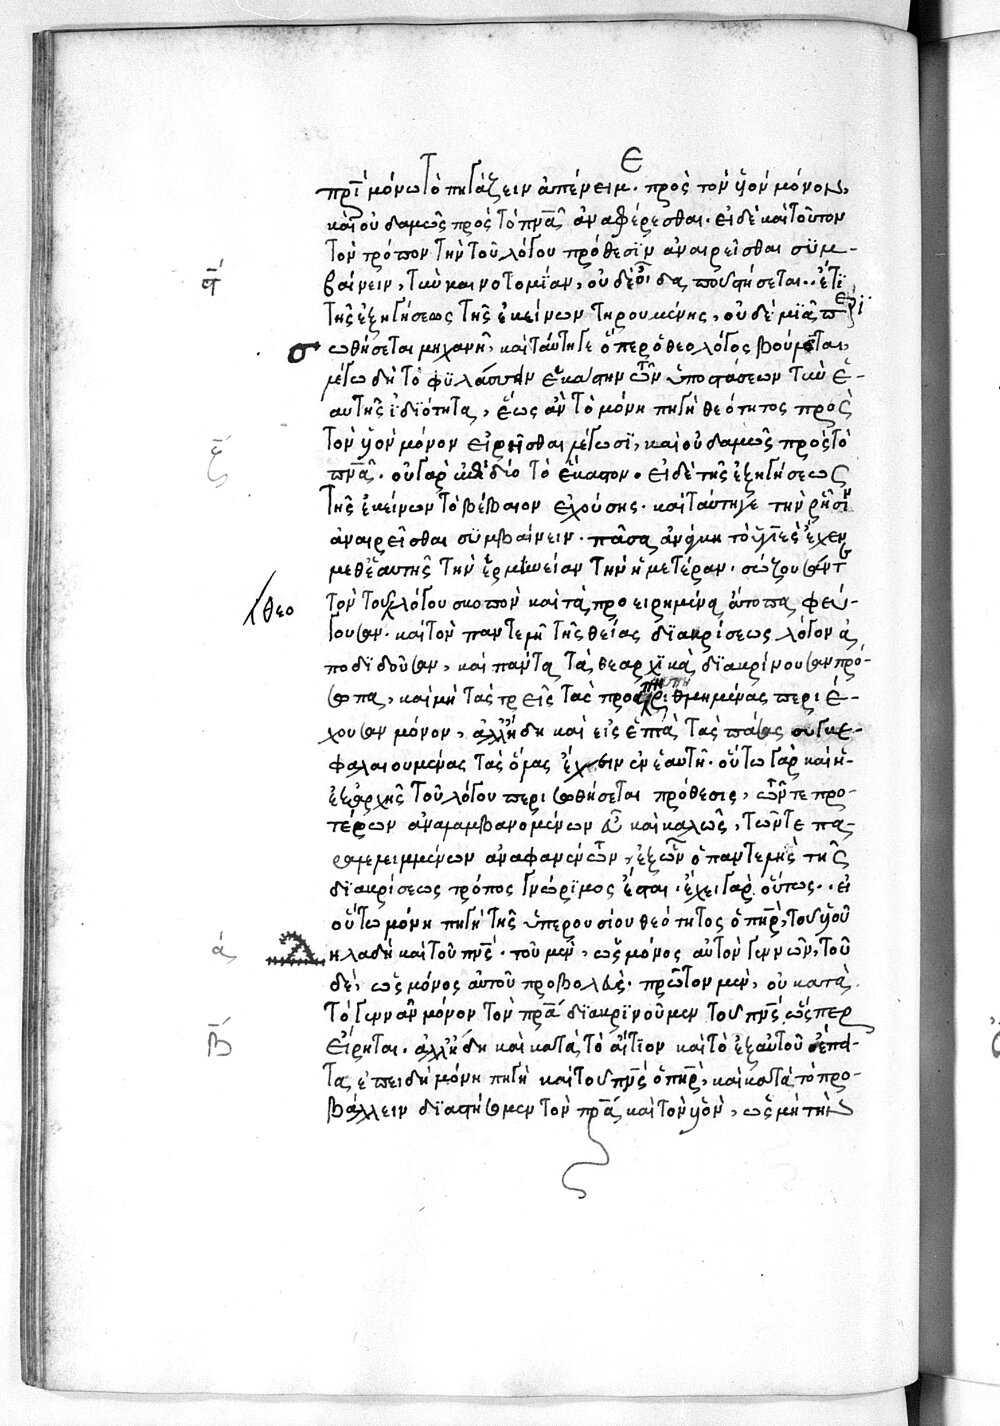 Ε
πρὶ μόνω τὸ πηγάζειν ἀπένειμ. πρὸς τὸν ὑὸν μόνον,
καὶ οὐδαμῶς πρὸς τὸ πνᾶ ἀναφέρεσθαι. εἰ δὲ καὶ τοῦτον
τὸν τρόπον τὴν τοῦ λόγου πρόθεσϊν ἀναιρεῖσθαι σϋμ-
βαίνειν, τῶν καινοτομϊῶν, οὐδὲ οἵδας ποιήσεται.. ἔτϊ
τῆς ἐξηγήσεως τῆς ἐκείνων τηρουμένης, οὐδὲ μϊᾶ περϊ
σωθήσεται μηχανῆ, καὶ ταύτη γε ὅπερ ὁ θεολόγος βούλεται,
λέγω δὴ τὸ φϋλάττειν ἑκάστην τῶν ὑποστάσεων τὴν ἑ-
αυτῆς ἰδιότητα, ἕως ἂν τὸ μόνη πηγὴ θεότητος πρὸς
τὸν ὑὸν μόνον εἰρῆσθαι λέγωσϊ, καὶ οὐδαμῶς πρὸς τὸ
πνᾶ. οὐ γὰρ ἀΐδιο τὸ ἕκαστον. εἰ δὲ τῆς ἐξηγήσεως
τῆς ἐκείνων τὸ βέβαιον ἐχούσης. καὶ ταύτη γε τὴν ῥῆσϊν
ἀναιρεῖσθαι σϋμβαίνειν. πᾶσα ἀνάγκη τὸ ἀληθὲς ἔχειν
μεθ' ἑαυτῆς τὴν ἑρμηνείαν τὴν ἡμετέραν. σώζουσάν τε
τὸν τοῦ λόγου σκοπὸν καὶ τὰ προειρημένα ἄτοπα φεύ-
θεο
γουσαν. καὶ τὸν παντελῆ τῆς θείας δϊακρίσεως λόγον ἀ
ποδϊδοῦσαν, καὶ πάντα τὰ θεαρχϊκὰ δϊακρίνουσαν πρό-
σωπα, καὶ μὴ τὰς τρεῖς τὰς προαπηριθμημένας περιέ-
χουσαν μόνον, ἀλλ' ἤδη καὶ εἰς ἑπτὰ τὰς πάσας συγκε-
φαλαιουμένας τὰς ὅλας ἔχειν ἐν ἑαυτῆ. οὕτω γὰρ καὶ ἡ
ἐξαρχῆς τοῦ λόγου περισωθήσεται πρόθεσις, τῶν τε προ-
τέρων ἀναλαμβανομένων εὖ καὶ καλῶς, τῶν τε πα-
ραλελειμμένων ἀναφανέντων, ἐξ ὧν ὁ παντελὴς τῆς
δϊακρίσεως τρόπος γνώρϊμος ἔσται. ἔχει γὰρ οὕτως.. εἰ
οὕτω μόνη πηγὴ τῆς ὑπερουσίου θεότητος ὁ πηρ, τοῦ ὑοῦ
δηλαδὴ καὶ τοῦ πνς. τοῦ μὲν, ὡς μόνος αὐτὸν γεννῶν, τοῦ
δὲ, ὡς μόνος αὐτοῦ προβολεύς. πρῶτον μὲν, οὐ κατὰ
τὸ γεννᾶν μόνον τὸν πρα δϊακρίνομεν τοῦ πνς ὥσπερ
εἴρηται. ἀλλ' ἤδη καὶ κατὰ τὸ αἴτϊον καὶ τὸ ἐξ αὐτοῦ
τας ἐπειδὴ μόνη πηγὴ καὶ τοῦ πνς ὁ πηρ, καὶ κατὰ τὸ προ-
βάλλειν δϊαστήσωμεν τὸν πρα καὶ τὸν ὑὸν, ὡς μὴ τὴν